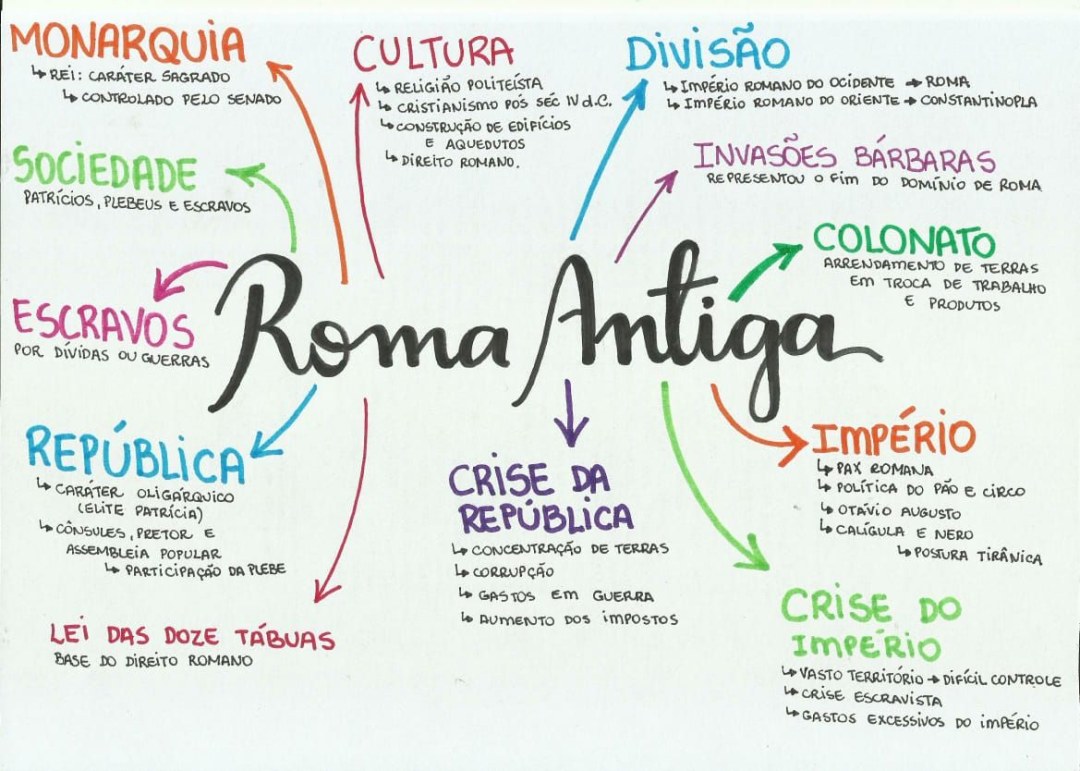 MONARQUIA
↳ REI: CARÁTER SAGRADO
↳ CONTROLADO PELO SENADO
CULTURA
↳ RELIGIÃO POLITEÍSTA
↳ CRISTIANISMO PÓS SÉC IV d.C.
↳ CONSTRUÇÃO DE EDIFÍCIOS
E AQUEDUTOS
↳ DIREITO ROMANO.
DIVISÃO
↳ IMPÉRIO ROMANO DO OCIDENTE → ROMA
↳ IMPÉRIO ROMANO DO ORIENTE → CONSTANTINOPLA
SOCIEDADE
PATRÍCIOS, PLEBEUS E ESCRAVOS
INVASÕES BÁRBARAS
REPRESENTOU O FIM DO DOMÍNIO DE ROMA
COLONATO
ARRENDAMENTO DE TERRAS
EM TROCA DE TRABALHO
E PRODUTOS
ESCRAVOS
POR DÍVIDAS OU GUERRAS
Roma Antiga
REPÚBLICA
↳ CARÁTER OLIGÁRQUICO
(ELITE PATRÍCIA)
↳ CÔNSULES, PRETOR E
ASSEMBLEIA POPULAR
↳ PARTICIPAÇÃO DA PLEBE
LEI DAS DOZE TÁBUAS
BASE DO DIREITO ROMANO
CRISE DA
REPÚBLICA
↳ CONCENTRAÇÃO DE TERRAS
↳ CORRUPÇÃO
↳ GASTOS EM GUERRA
↳ AUMENTO DOS IMPOSTOS
IMPÉRIO
↳ PAX ROMANA
↳ POLÍTICA DO PÃO E CIRCO
↳ OTÁVIO AUGUSTO
↳ CALÍGULA E NERO
↳ POSTURA TIRÂNICA
CRISE DO
IMPÉRIO
↳ VASTO TERRITÓRIO → DIFÍCIL CONTROLE
↳ CRISE ESCRAVISTA
↳ GASTOS EXCESSIVOS DO IMPÉRIO